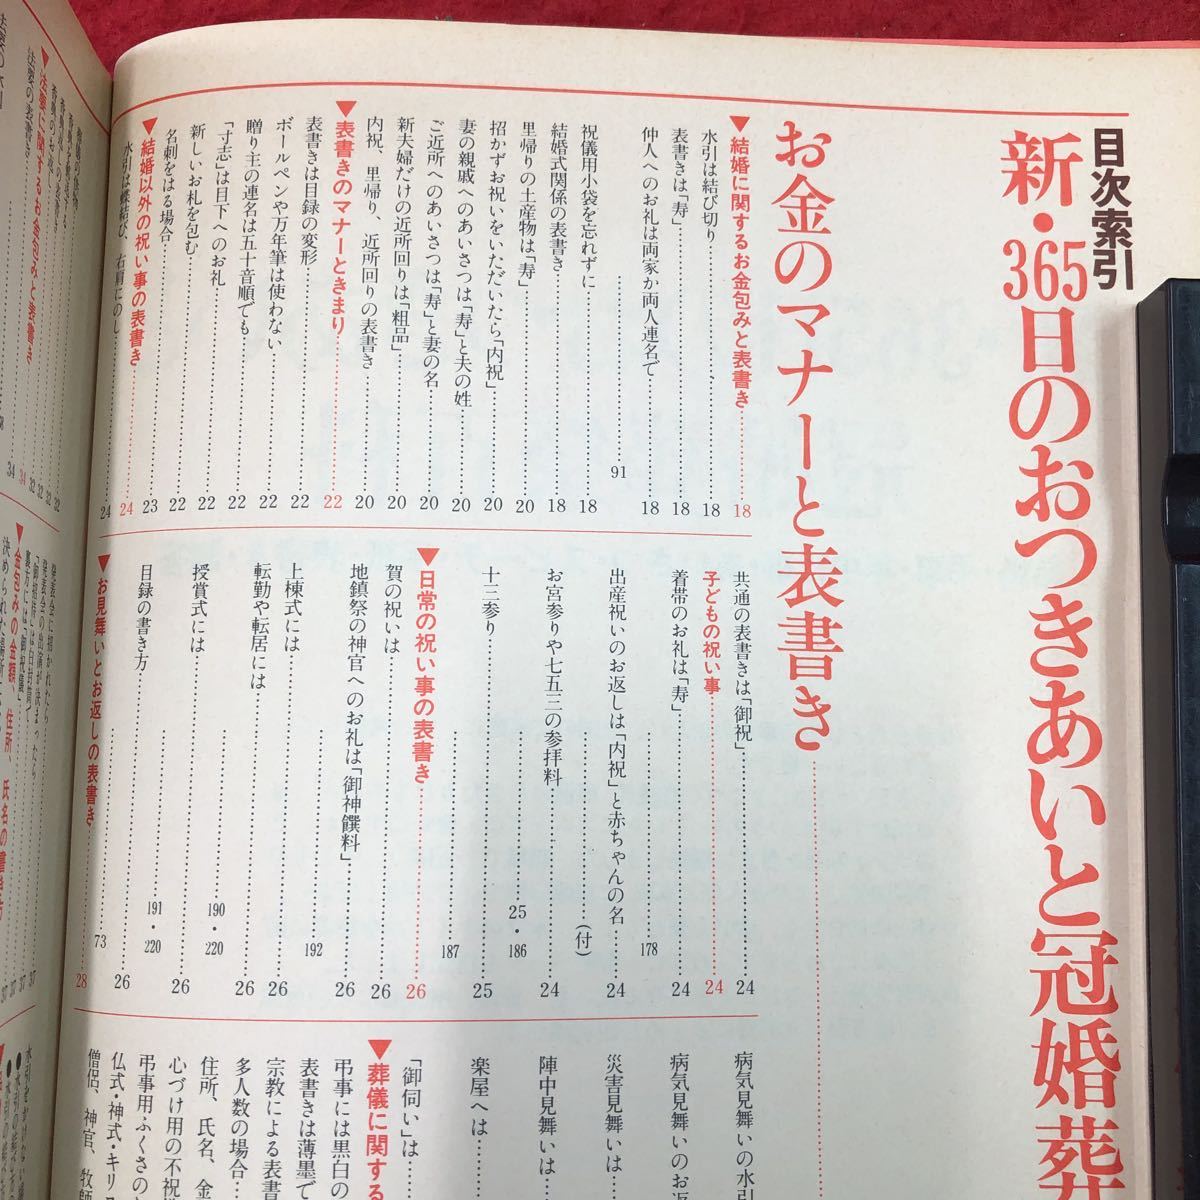 目次索引
新・365日のおつきあいと冠婚葬
お金のマナーと表書き
▼結婚に関するお金包みと表書き 18
水引は結び切り 18
表書きは「寿」 18
仲人へのお礼は両家か両人連名で 18
91
祝儀用小袋を忘れずに 18
結婚式関係の表書き 18
里帰りの土産物は「寿」 20
招かずお祝いをいただいたら「内祝」 20
妻の親戚へのあいさつは「寿」と夫の姓 20
ご近所へのあいさつは「寿」と妻の名 20
新夫婦だけの近所回りは「粗品」 20
内祝、里帰り、近所回りの表書き 20
▼表書きのマナーときまり 22
表書きは目録の変形 22
ボールペンや万年筆は使わない 22
贈り主の連名は五十音順でも 22
「寸志」は目下へのお礼 22
新しいお札を包む 22
名刺をはる場合 23
▼結婚以外の祝い事の表書き 24
水引は蝶結び、右肩にのし 24
共通の表書きは「御祝」 24
子どもの祝い事 24
着帯のお礼は「寿」 24
178
出産祝いのお返しは「内祝」と赤ちゃんの名 24
(付)
お宮参りや七五三の参拝料 24
25・186
十三参り 25
187
▼日常の祝い事の表書き 26
賀の祝いは 26
地鎮祭の神官へのお礼は「御神饌料」 26
192
上棟式には 26
転勤や転居には 26
190・220
授賞式には 26
191・220
目録の書き方 26
73
▼お見舞いとお返しの表書き 28
病気見舞いの水引
病気見舞いのお返
災害見舞いは
陣中見舞いは
楽屋へは
「御伺い」は
▼葬儀に関する
弔事には黒白の
表書きは薄墨で
宗教による表書
多人数の場合
住所、氏名、金
心づけ用の不祝
弔事用ふくさの
仏式・神式・キリス
僧侶、神官、牧師
▼法要に関するお金包みと表書き 34
法要の表書き 34
発表会に招かれたら 37
発表会の出演が決まったら 37
▼金包みの金額、住所、氏名の書き方